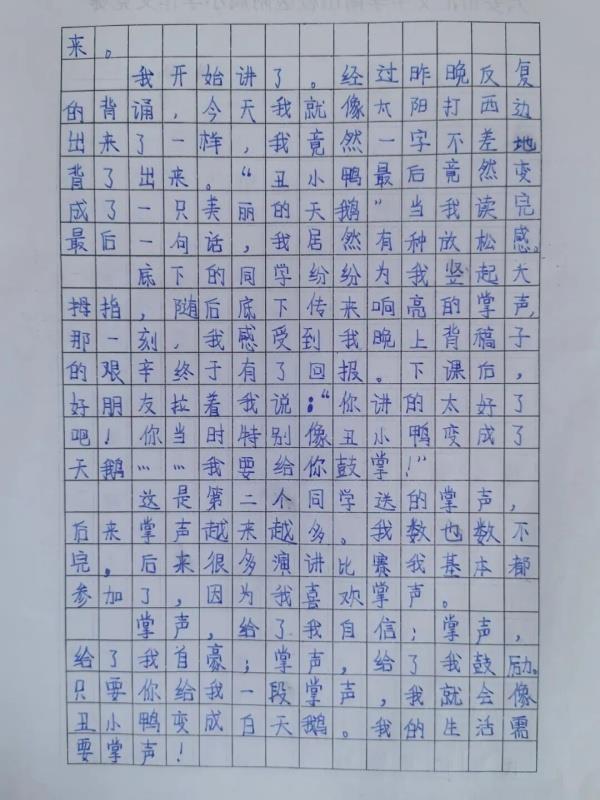 来。
我开始讲了。经过昨晚反复
的背诵，今天我就像太阳打西边
出来了一样，我竟然一字不差地
背了出来。“丑小鸭最后竟然变
成了一只美丽的天鹅”当我读完
最后一句话，我居然有种放松感。
底下的同学纷纷为我竖起大
拇指，随后底下传来响亮的掌声，
那一刻，我感受到我晚上背稿子
的艰辛终于有了回报。下课后，
好朋友拉着我说：“你讲的太好了
吧！你当时特别像丑小鸭变成了
天鹅……我要给你鼓掌！”
这是第二个同学送的掌声，
后来掌声越来越多。我数也数不
完。后来很多演讲比赛我基本都
参加了，因为我喜欢掌声。
掌声，给了我自信；掌声，
给了我自豪；掌声，给了我鼓励。
只要你给我一段掌声，我就会像
丑小鸭变成白天鹅。我的生活需
要掌声！